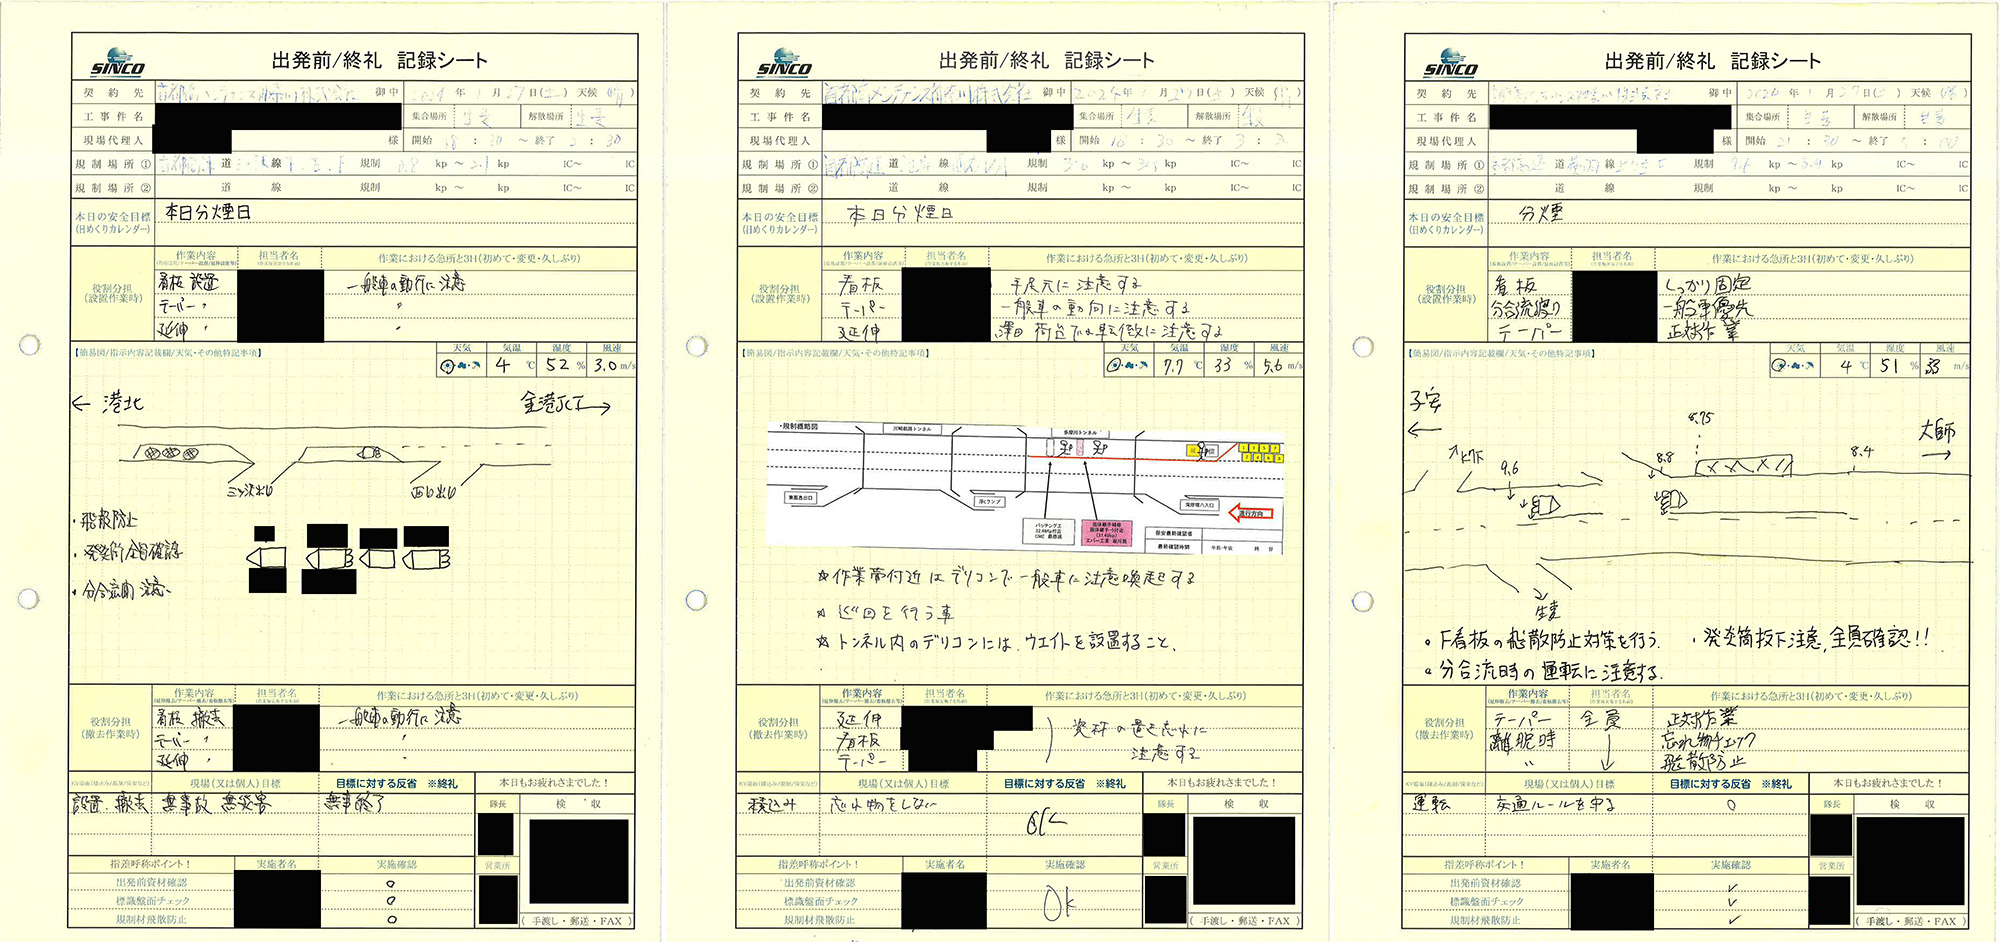 SINCO
出発前/終礼 記録シート
契約先 御中 2024年1月27日(土) 天候(晴)
工事件名 集合場所 生麦 解散場所 生麦
現場代理人 様 開始 18:30～終了 :30
規制場所① 道 線 規制 0.8 kp～2.1 kp IC～ IC
規制場所② 道 線 規制 kp～ kp IC～ IC
本日の安全目標
(日めくりカレンダー)
本日分煙日
作業内容 担当者名 作業における急所と3H(初めて・変更・久しぶり)
役割分担
(設置作業時)
看板 設置 一般車の動行に注意
テーパー 〃 〃
延伸 〃 〃
【簡易図/指示内容記載欄/天気・その他特記事項】
天気 気温 湿度 風速
4 ℃ 52 % 3.0 m/s
← 港北
金港JCT →
三ツ沢出口 西口出口
・飛散防止
・発炎筒全員確認
・分合流時注意
作業内容 担当者名 作業における急所と3H(初めて・変更・久しぶり)
役割分担
(撤去作業時)
看板 撤去 一般車の動行に注意
テーパー 〃 〃
延伸 〃 〃
現場(又は個人)目標 目標に対する反省 ※終礼 本日もお疲れさまでした!
設置、撤去 無事故 無災害 無事終了
隊長 検収
指差呼称ポイント! 実施者名 実施確認 営業所
出発前資材確認 ○
標識盤面チェック ○
規制材飛散防止 ○
(手渡し・郵送・FAX)
SINCO
出発前/終礼 記録シート
契約先 御中 2024年1月27日(土) 天候(晴)
工事件名 集合場所 生麦 解散場所 生麦
現場代理人 様 開始 18:30～終了 3:
規制場所① 道 線 規制 kp～ kp IC～ IC
規制場所② 道 線 規制 kp～ kp IC～ IC
本日の安全目標
(日めくりカレンダー)
本日分煙日
作業内容 担当者名 作業における急所と3H(初めて・変更・久しぶり)
役割分担
(設置作業時)
看板 手足元に注意する
テーパー 一般車の動向に注意する
延伸 澤田 荷台では転倒に注意する
【簡易図/指示内容記載欄/天気・その他特記事項】
天気 気温 湿度 風速
7.7 ℃ 33 % 5.6 m/s
・規制概略図
川崎航路トンネル
多摩川トンネル
東扇島出口
浮島ランプ
湾岸環八入口
進行方向
保安最終確認者
最終確認時間 年長・年前 時 分
☆作業帯付近はデリコンで一般車に注意喚起する
☆巡回を行う事
☆トンネル内のデリコンには、ウエイトを設置すること、
作業内容 担当者名 作業における急所と3H(初めて・変更・久しぶり)
役割分担
(撤去作業時)
延伸 資材の置き忘れに
看板 注意する
テーパー
現場(又は個人)目標 目標に対する反省 ※終礼 本日もお疲れさまでした!
積込み 忘れ物をしない OK
隊長 検収
指差呼称ポイント! 実施者名 実施確認 営業所
出発前資材確認
標識盤面チェック OK
規制材飛散防止
(手渡し・郵送・FAX)
SINCO
出発前/終礼 記録シート
契約先 御中 2024年1月27日(土) 天候(晴)
工事件名 集合場所 生麦 解散場所 生麦
現場代理人 様 開始 21:30～終了 :00
規制場所① 道 線 規制 9.6 kp～8.4 kp IC～ IC
規制場所② 道 線 規制 kp～ kp IC～ IC
本日の安全目標
(日めくりカレンダー)
分煙
作業内容 担当者名 作業における急所と3H(初めて・変更・久しぶり)
役割分担
(設置作業時)
看板 しっかり固定
分合流渡り 一般車優先
テーパー 正対作業
【簡易図/指示内容記載欄/天気・その他特記事項】
天気 気温 湿度 風速
4 ℃ 51 % m/s
子安
←
大師
→
8.75
9.6 8.8 8.4
生麦
・F看板の飛散防止対策を行う. ・発炎筒投下注意,全員確認!!
・分合流時の運転に注意する.
作業内容 担当者名 作業における急所と3H(初めて・変更・久しぶり)
役割分担
(撤去作業時)
テーパー 全員 正対作業
離脱時 忘れ物チェック
〃 ↓ 飛散防止
現場(又は個人)目標 目標に対する反省 ※終礼 本日もお疲れさまでした!
運転 交通ルールを守る ○
隊長 検収
指差呼称ポイント! 実施者名 実施確認 営業所
出発前資材確認 ✓
標識盤面チェック ✓
規制材飛散防止 ✓
(手渡し・郵送・FAX)